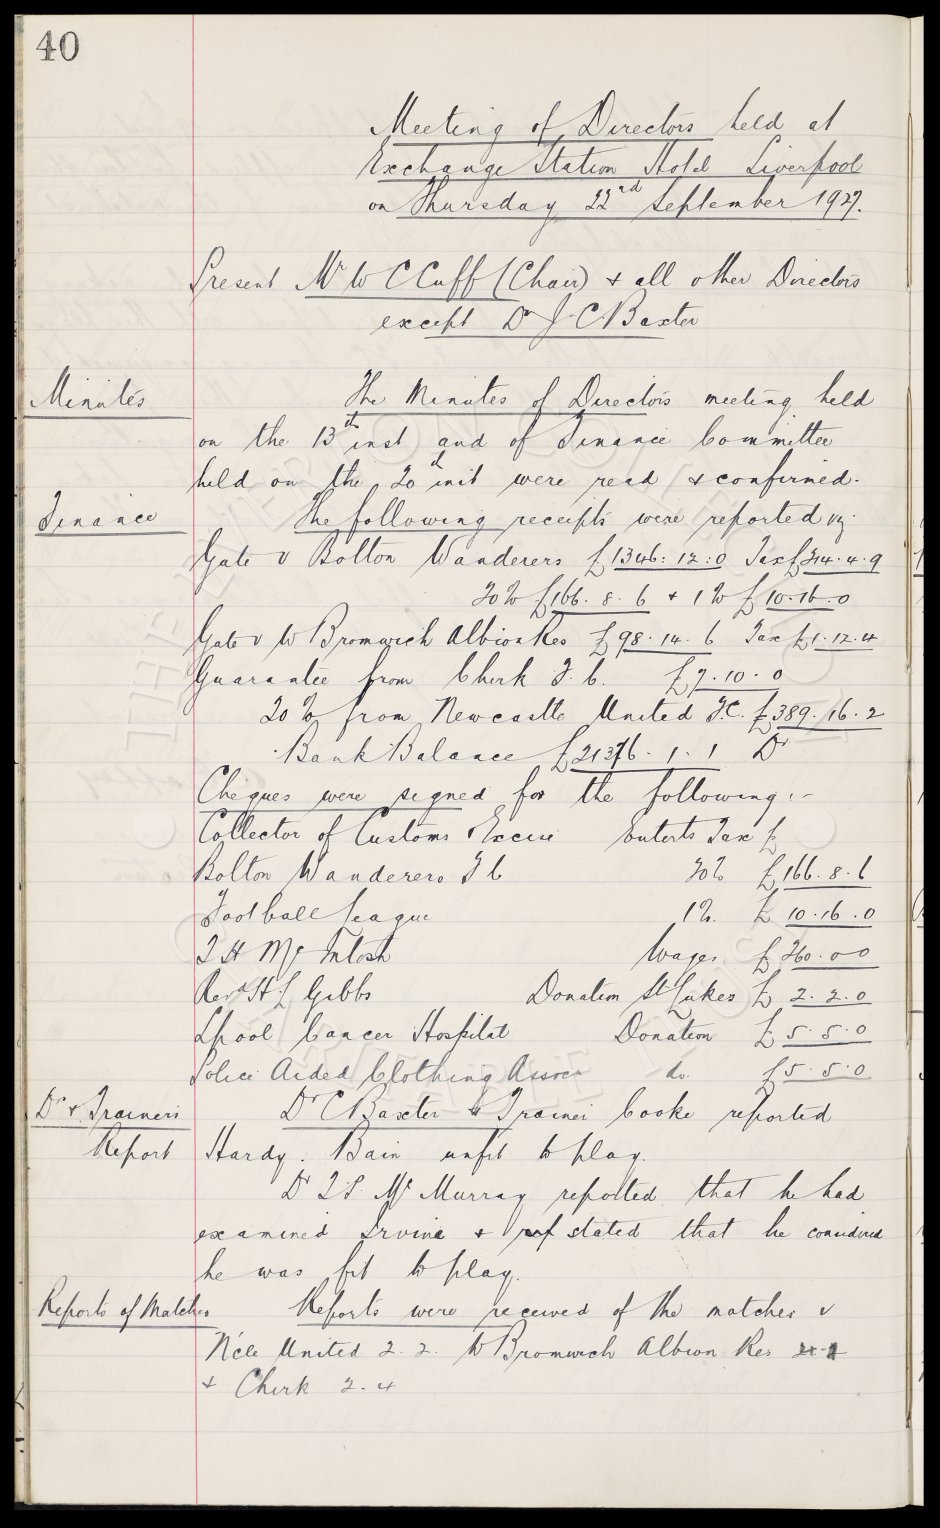 40
Meeting of Directors held at
Exchange Station Hotel Liverpool
on Thursday 22nd September 1927.
Present Mr W C Cuff (Chair) & all other Directors
except Dr J C Baxter
Minutes
The Minutes of Directors meeting held
on the 13th inst and of Finance Committee
held on the 20th inst were read & confirmed.
Finance
The following receipts were reported viz.
Gate v Bolton Wanderers £1346: 12: 0 Tax £214. 4. 9
20% £166. 8. 6 & 1% £10. 16. 0
Gate v W Bromwich Albion Res £98. 14. 6 Tax £1. 12. 4
Guarantee from Chirk F. C. £7. 10. 0
20% from Newcastle United F.C. £389. 16. 2
Bank Balance £21376. 1. 1 Dr
Cheques were signed for the following:-
Collector of Customs & Excise Enterts Tax £
Bolton Wanderers F C 20% £166. 8. 6
Football League 1%. £10. 16. 0
T H McIntosh Wages. £260. 0 0
Revd H L Gibbs Donation St Lukes £2. 2. 0
Lpool Cancer Hospital Donation £5. 5. 0
Police Aided Clothing Assocn do. £5. 5. 0
Dr & Trainers
Report
Dr C Baxter & Trainer Cooke reported
Hardy. Bain unfit to play.
Dr T S McMurray reported that he had
examined Irvine & stated that he considered
he was fit to play.
Reports of Matches
Reports were received of the matches v
N'cle United 2. 2. W Bromwich Albion Res
& Chirk 2. 4